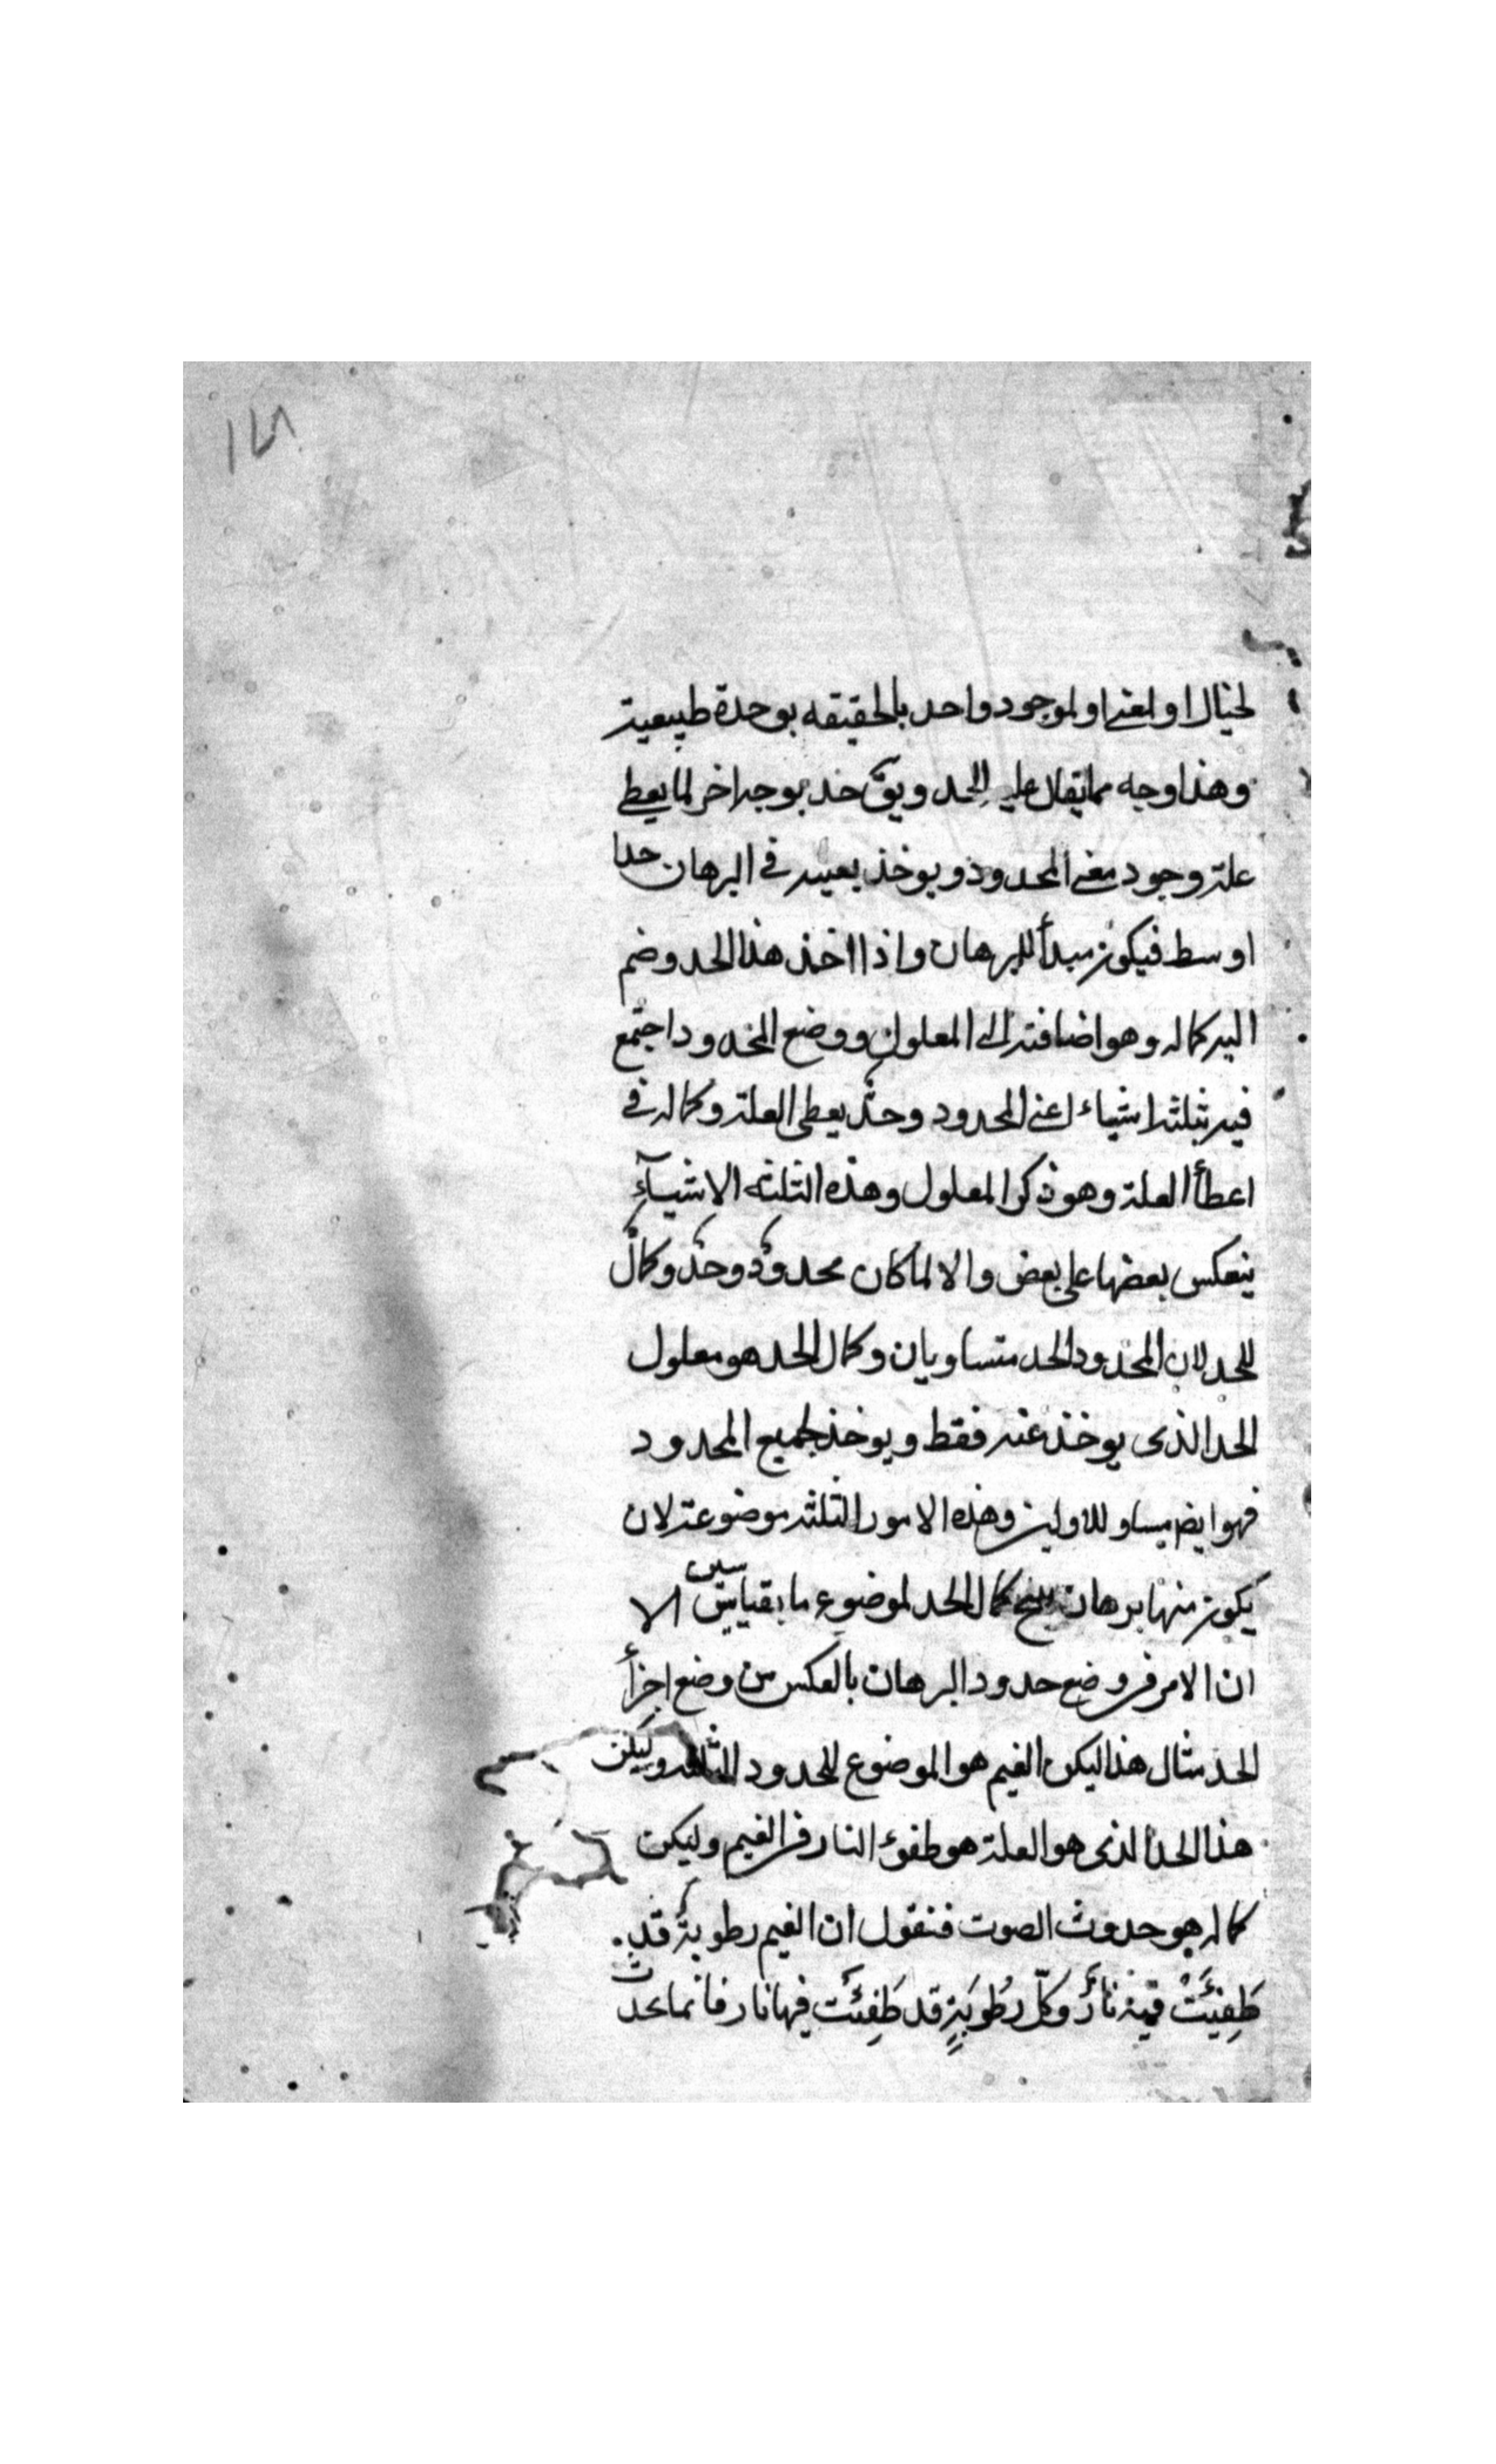 ١٤٨
لخيال او لمعنى او لموجود واحد بالحقيقه بوحدة طبيعية
وهذا وجه مما يقال عليه الحد ويق حد بوجه اخر لما يعطى
علة وجود معنى المحدود ويوخذ بعينه في البرهان حدا
اوسط فيكون مبدأ للبرهان واذا اخذ هذا الحد وضم
اليه كماله وهو اضافته الى المعلول ووضع المحدود اجتمع
فيه ثلثة اشياء اعنى المحدود وحدٌّ يعطى العلة وكماله في
اعطأ العلة وهو ذكر المعلول وهذه الثلثه الاشيآءِ
ينعكس بعضها على بعض والا لما كان محدودٌ وحدٌ وكمالٌ
للحد لان المحدود الحد متساويان وكمال الحد هو معلول
الحد الذى يوخذ عنه فقط ويوخذ لجميع المحدود
فهو ايض مساو للاولين وهذه الامور الثلثه موضوعة لان
يكون منها برهان ينتج كمال الحد لموضوع ما بقياسين الا
ان الامر في وضع حدود البرهان بالعكس من وضع اجزأ
الحد مثال هذا ليكن الغيم هو الموضوع للحدود الثلثه وليكن
هذا الحد الذى هو العلة هو طفوء النار في الغيم وليكن
كماله هو حدوث الصوت فنقول ان الغيم رطوبةٌ قد
طَفِئَتْ فيه نارٌ وكلّ رُطوبَةٍ قد طَفِئَت فيها نار فانما يحدث